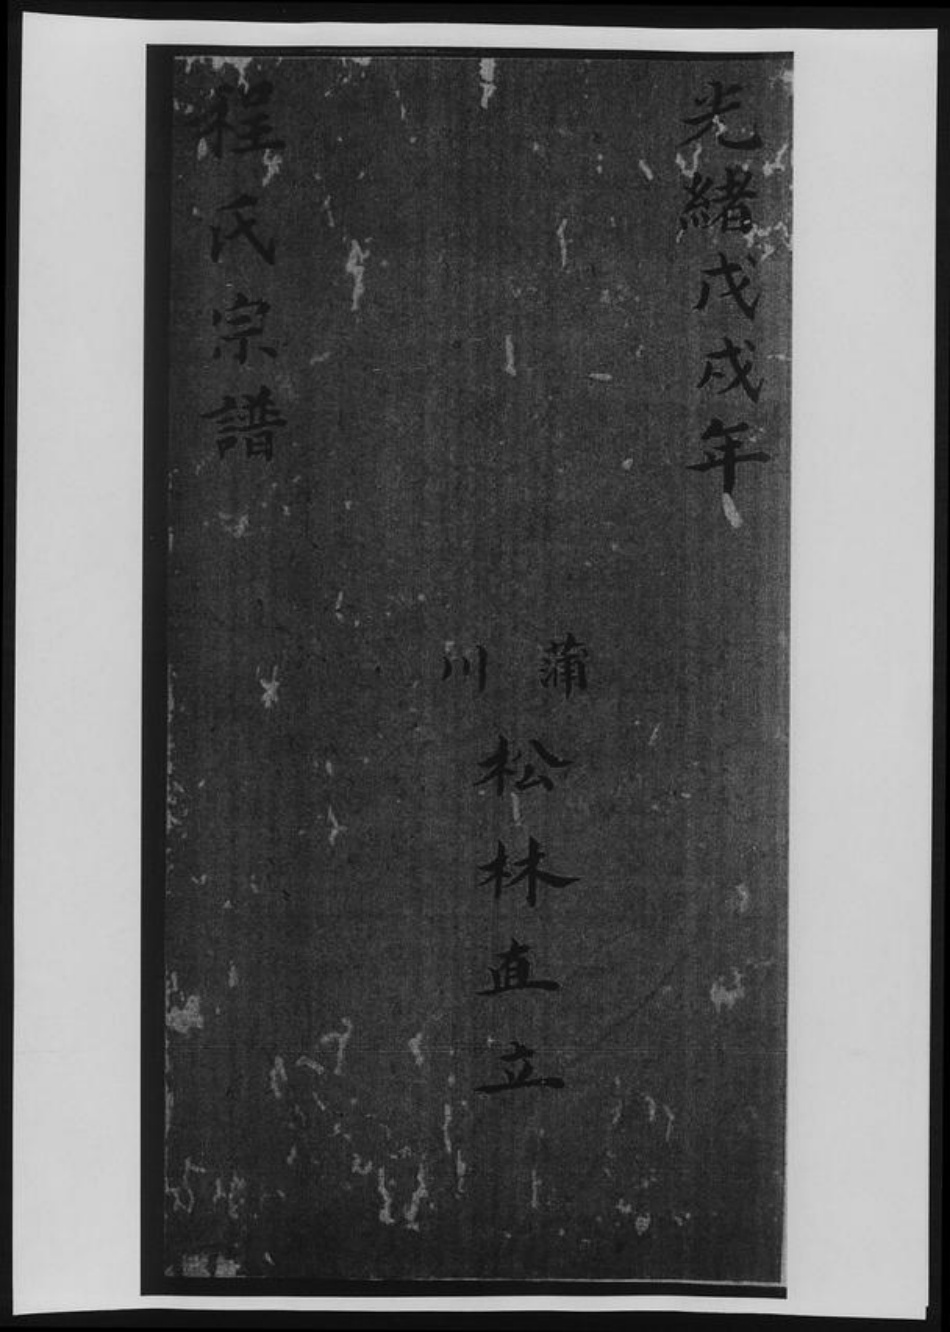 光緒戊戌年
蒲川
松林直立
程氏宗譜